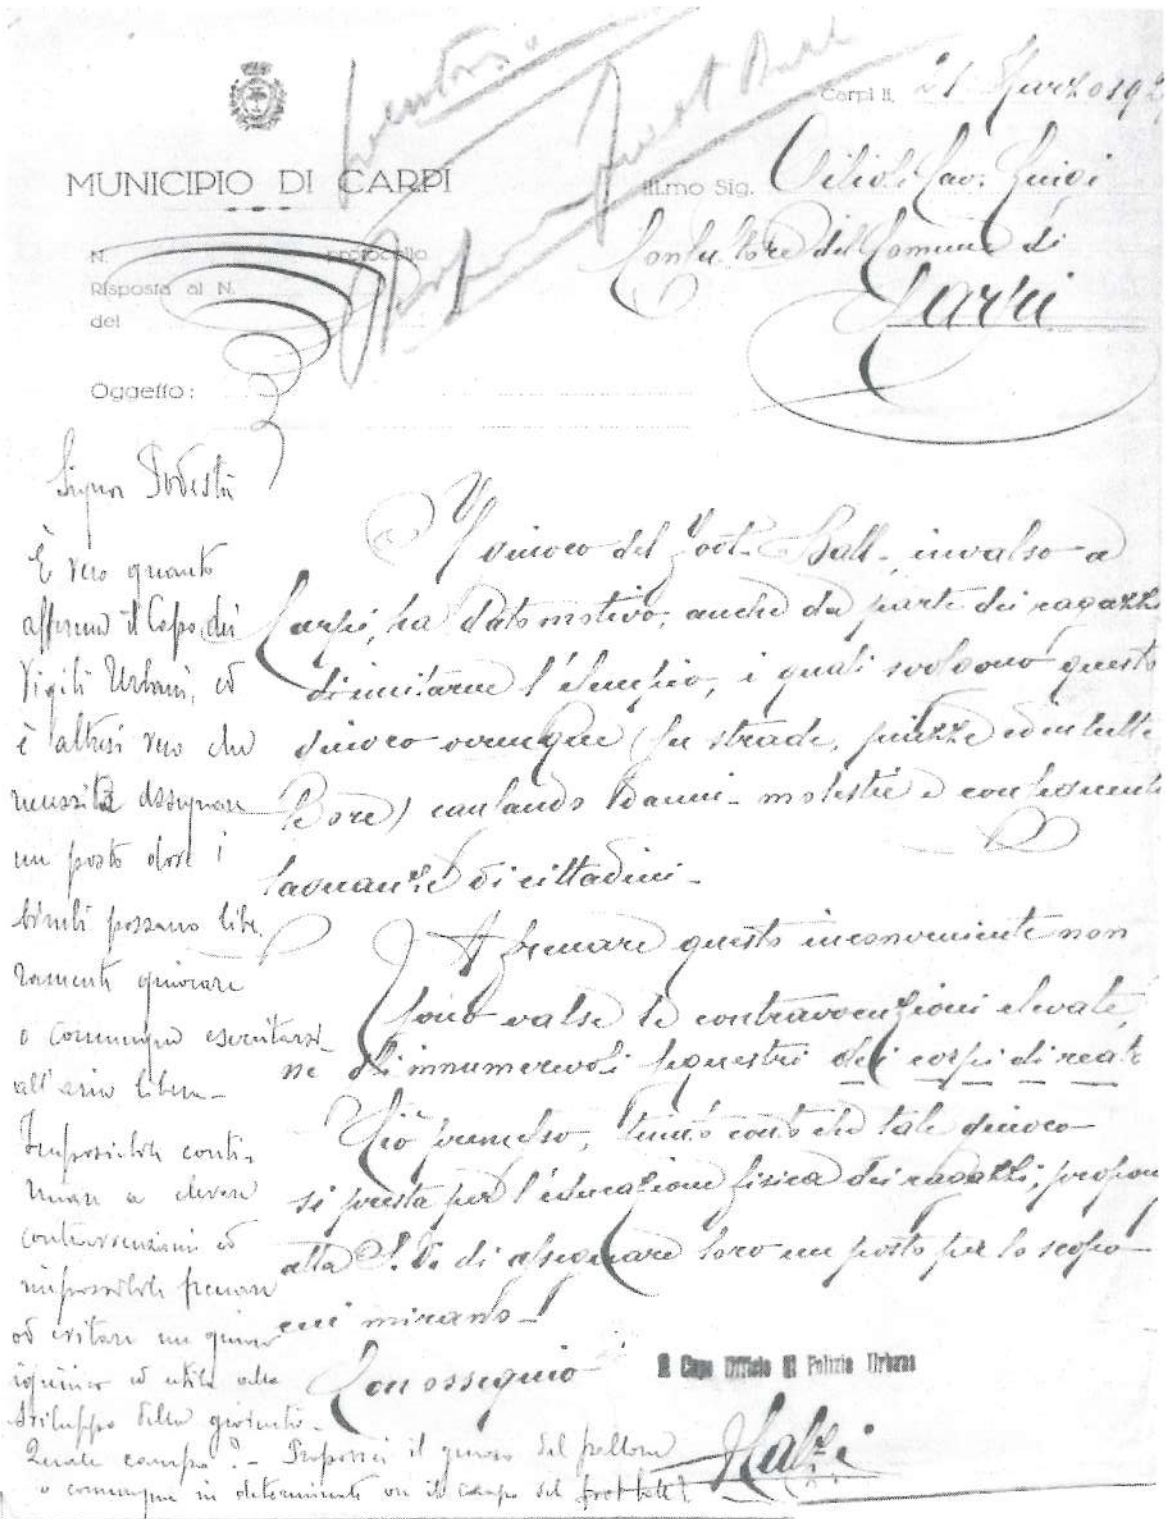 Carpi li, 21 Marzo 192
MUNICIPIO DI CARPI
Ill.mo Sig. Cav. Luigi
Consultore del Comune di
Carpi
N. protocollo
Risposta al N.
del
Oggetto:
Il giuoco del Foot-Ball-, invalso a
Carpi, ha dato motivo, anche da parte dei ragazzi
di imitarne l'esempio, i quali svolgono questo
giuoco ovunque (su strade, piazze ed in tutte
le ore) causando danni - molestie e conseguenti
lagnanze di cittadini -
A frenare questo inconveniente non
sono valse le contravvenzioni elevate,
ne gli innumerevoli sequestri dei corpi di reato
Ciò premesso, tenuto conto che tale giuoco
si presta per l'educazione fisica dei ragazzi, propon
alla S. V. di assegnare loro un posto per lo scopo
cui mirano -
Con ossequio
Il Capo Ufficio di Polizia Urbana
Signor Podestà
È vero quanto
afferma il Capo dei
Vigili Urbani, ed
è altresì vero che
necessita assegnare
un posto dove i
bimbi possano libe-
ramente giuocare
o comunque esercitarsi
all'aria libera -
Impossibile conti-
nuare a elevare
contravvenzioni ed
impossibile frenare
od evitare un giuoco
igienico ed utile allo
sviluppo della gioventù -
Quale campo? - Proporrei il giuoco del pallone
o comunque in determinate ore il campo del foot ball